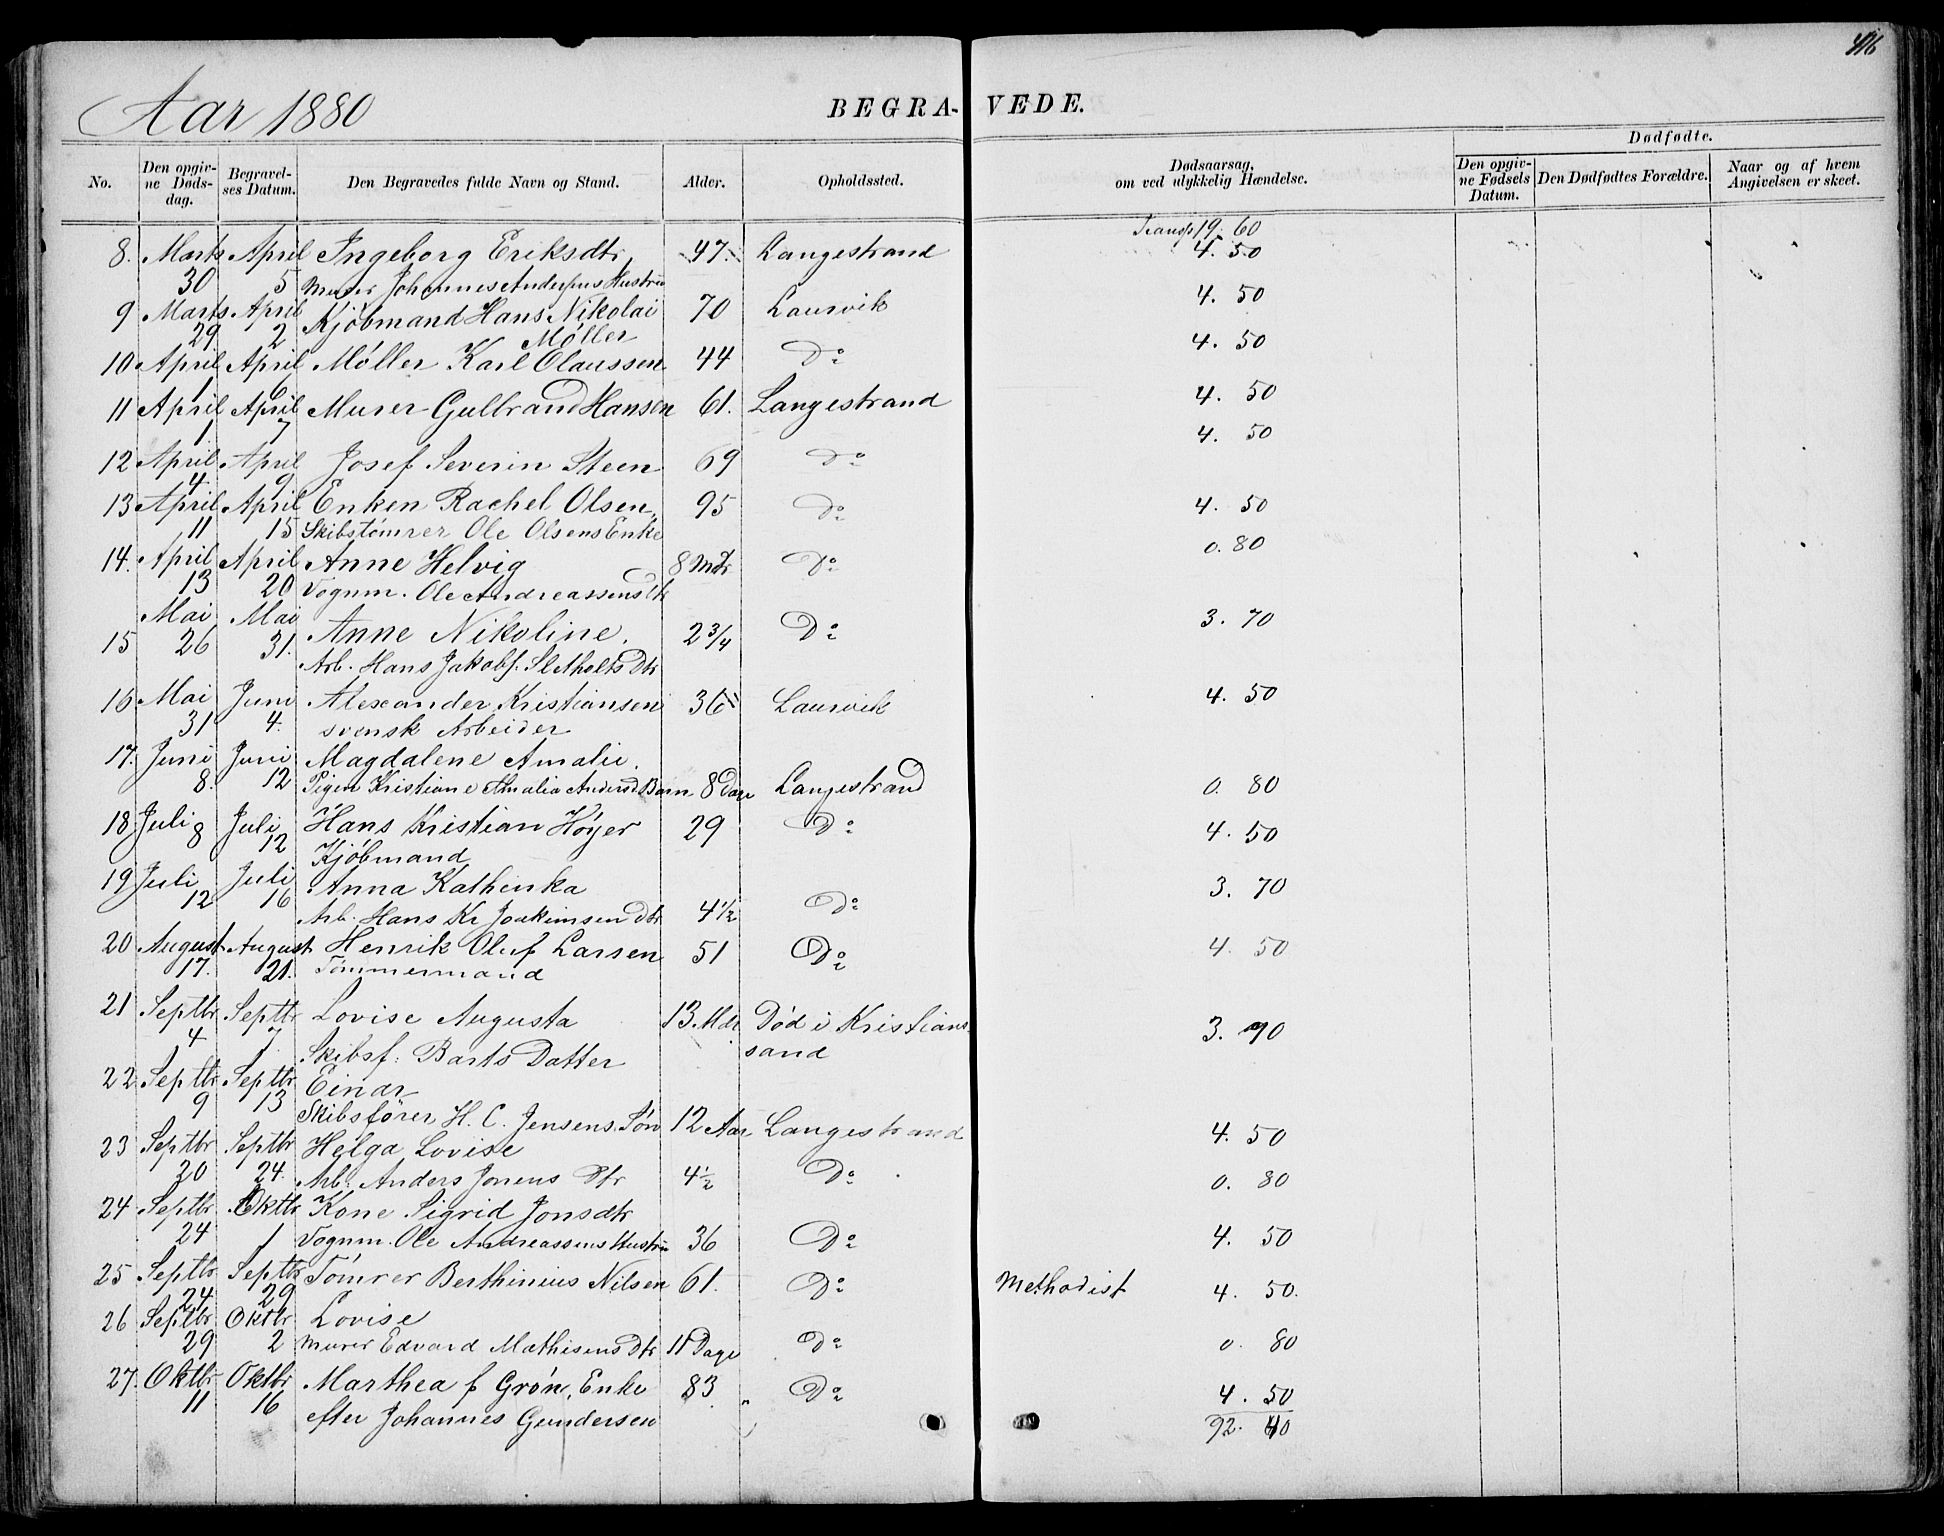 416
Aar 1880
BEGRA- VEDE.
Dødfødte.
No. Den opgiv- ne Døds- dag. Begravel- ses Datum. Den Begravedes fulde Navn og Stand. Alder. Opholdssted. Dødsaarsag, om ved ulykkelig Hændelse. Den opgiv- ne Fødsels Datum. Den Dødfødtes Forældre. Naar og af hvem Angivelsen er skeet.
Transp 19. 60
8. Marts April Ingeborg Eriksdtr 47. Langestrand 4. 50
30 5 Murer Johannes Andersens Hustru
9 Marts April Kjøbmand Hans Nikolai 70 Laurvik 4. 50
29 2 Møller
10 April April Møller Karl Olaussen 44 Do 4. 50
1 6
11 April April Murer Gulbrand Hansen 61. Langestrand 4. 50
1 7
12 April April Josef Severin Steen 69 Do 4. 50
4 9
13 April April Enken Rachel Olsen, 95 Do 4. 50
11 15 Skibstømrer Ole Olsens Enke
14. April April Anne Helvig 8 Mdr Do 0. 80
13 20 Vognm. Ole Andreassens Dtr
Mai Mai
15 26 31. Anne Nikoline. 2 3/4 Do 3. 70
Arb. Hans Jakobs. Sletholts Dtr
16 Mai Juni Alexander Kristiansen 36 Laurvik 4. 50
31 4. svensk Arbeider
17. Juni Juni Magdalene Amalie.
8. 12 Pigen Kristiane Amalia Andersd Barn 8 Dage Langestrand 0. 80
18 Juli 8 Juli 12 Hans Kristian Høyer 29 Do 4. 50
Kjøbmand
19 Juli Juli Anna Kathenka 3. 70
12 16 Arb. Hans Kr Joakimsen Dtr 4 1/2 Do
20 August August Henrik Oluf Larsen 51 Do 4. 50
17. 21. Tømmermand
21 Septbr Septbr Lovise Augusta 13 Mdr Død i Kristians- 3. 70
4 7 Skibsf. Barts Datter sand
22 Septbr Septbr Einar
9 13 Skibsfører H. C. Jensens Søn 12 Aar Langestrand 4. 50
23 Septbr Septbr Helga Lovise
20 24. Arb. Anders Jonens Dtr 4 1/2 Do 0. 80
24 Septbr Oktbr Kone Sigrid Jonsdtr
24 1 Vognm. Ole Andreassens Hustru 36 Do 4. 50
25 Septbr Septbr Tømrer Berthinius Nilsen 61. Do Methodist 4. 50.
24 29
26 Septbr Oktbr Lovise
29 2 Murer Edvard Mathisens Dtr 11 Dage Do 0. 80
27. Oktbr Oktbr Marthea f Grøn, Enke 83 " Do 4. 50
11 16 efter Johannes Gundersen 92. 40